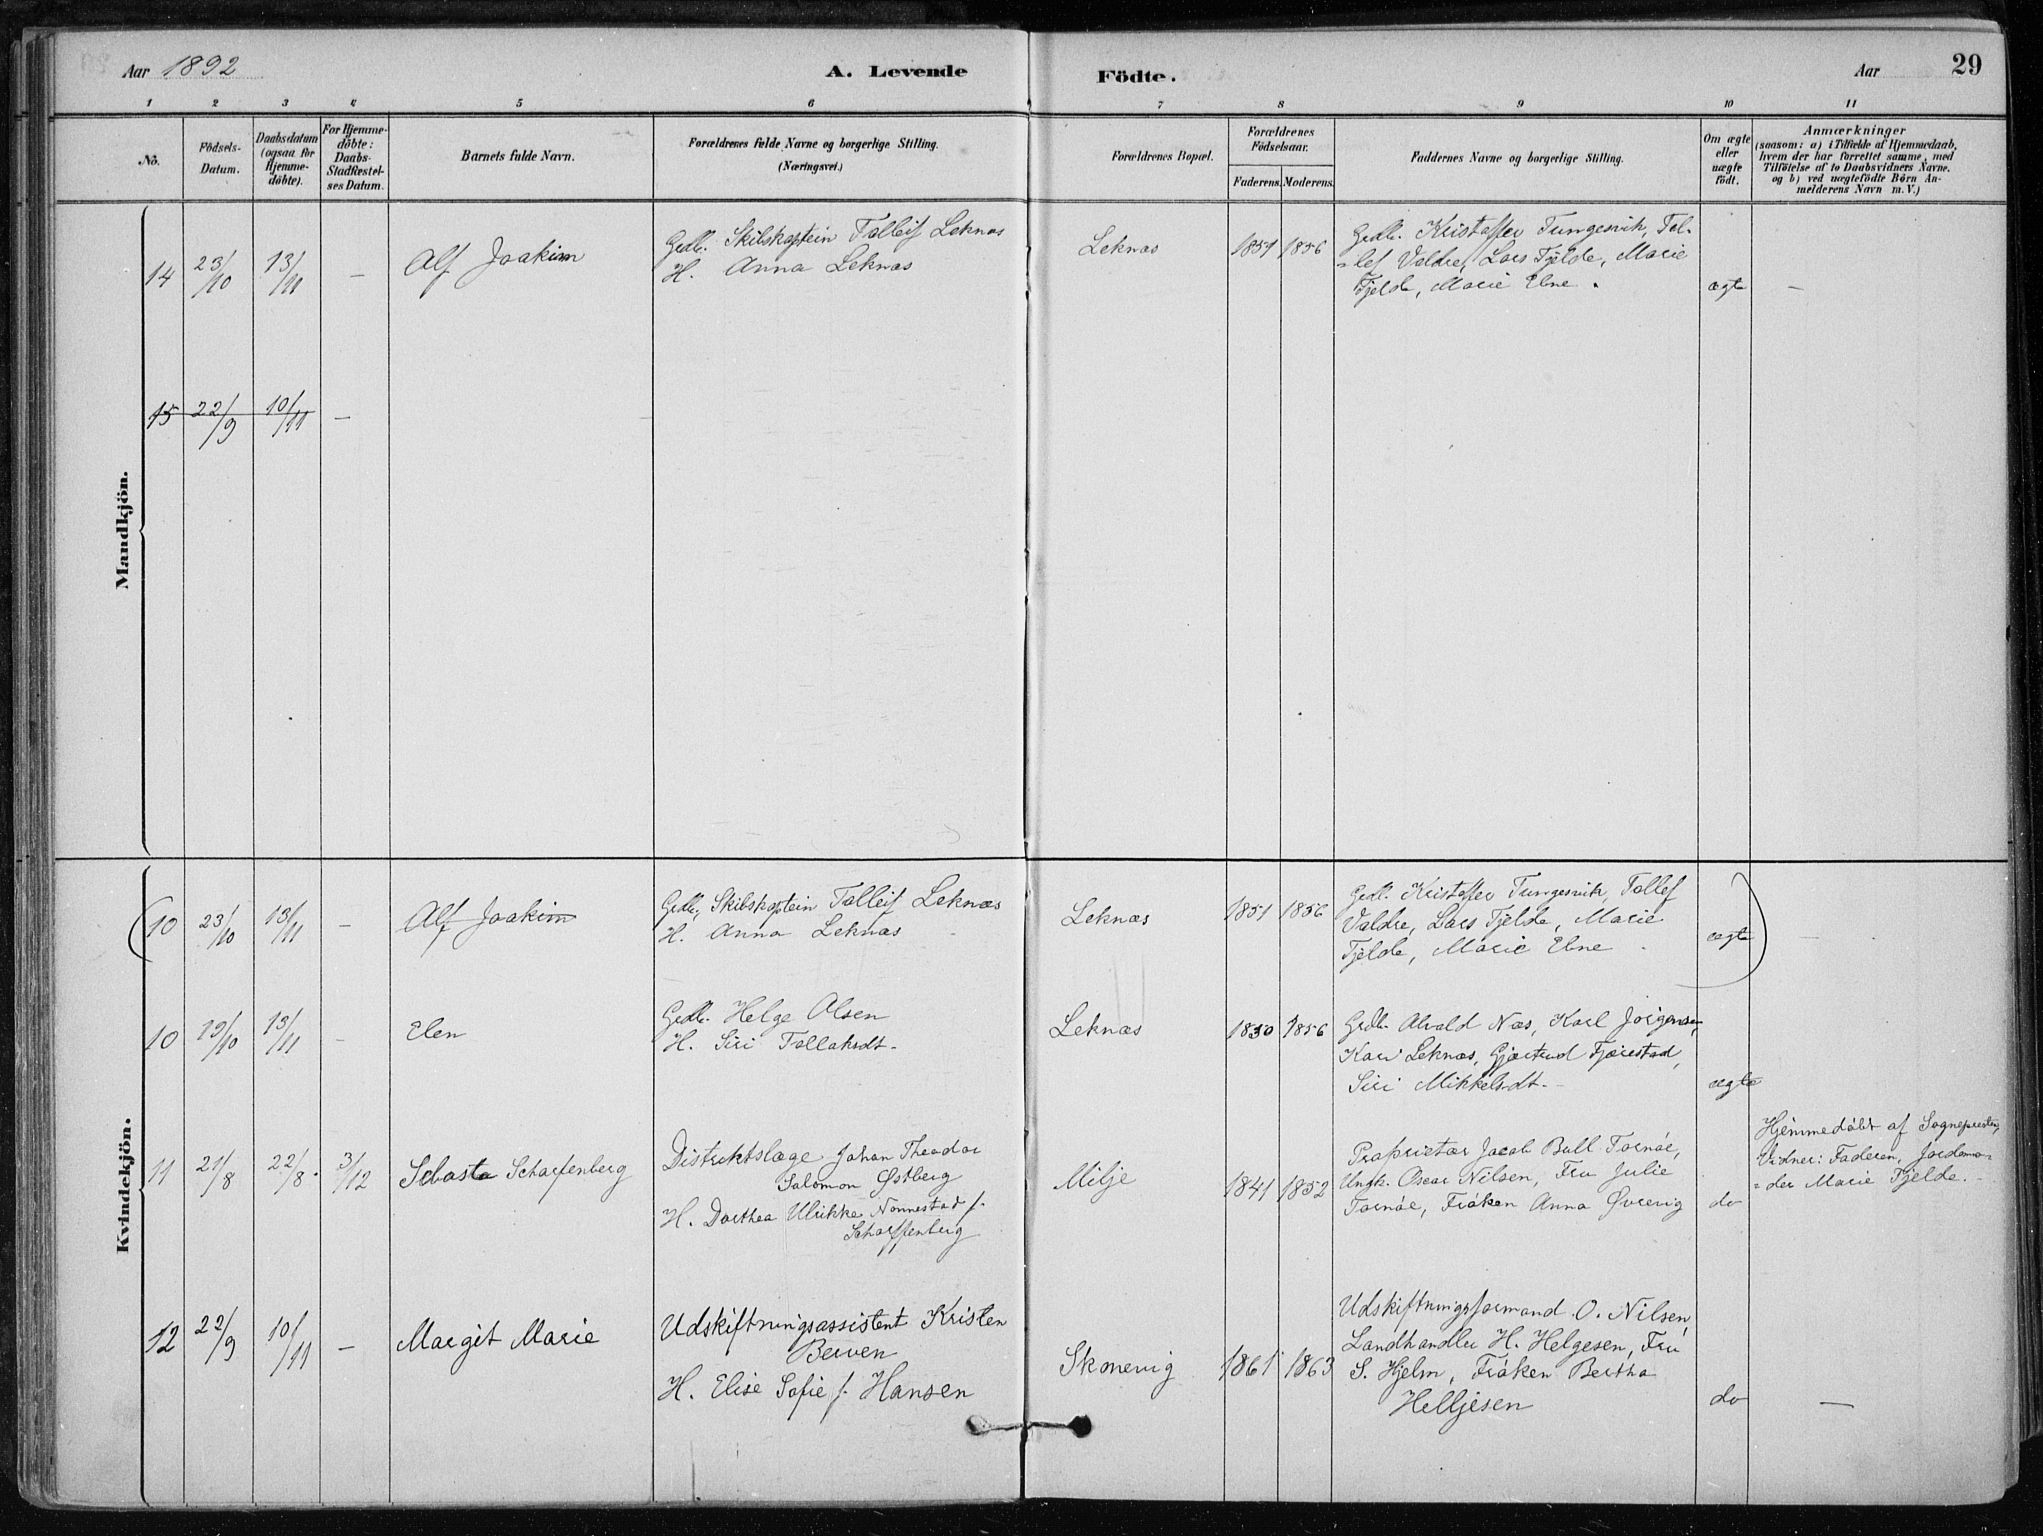 Aar 1892
A. Levende
Födte.
Aar
29
1 2 3 4 5 6 7 8 9 10 11
No.
Födsels-
Datum.
Daabsdatum
(ogsaa för
Hjemme-
döbte).
For Hjemme-
döbte:
Daabs-
Stadfæstel-
ses Datum.
Barnets fulde Navn.
Forældrenes fulde Navne og borgerlige Stilling.
(Næringsvei.)
Forældrenes Bopæl.
Forældrenes
Födselsaar.
Faderens. Moderens.
Faddernes Navne og borgerlige Stilling.
Om ægte
eller
uægte
födt.
Anmærkninger
(saasom: a) i Tilfælde af Hjemmedaab,
hvem der har forrettet samme, med
Tilföielse af to Daabsvidners Navne,
og b) ved uægtefödte Börn An-
melderens Navn m. V.)
Mandkjön.
14 23/10 13/11 — Alf Joakim
Grdbr. Skibskaptein Tolleif Leknæs
H. Anna Leknæs
Leknæs 1851 1856
Grdbr. Kristoffer Tungesvik, Tol-
=lef Valdre, Lars Fjelde, Marie
Fjelde, Marie Ebne.
ægte —
15 22/9 10/11 —
Kvindekjön.
(10 23/10 13/11 — Alf Joakim
Grdbr. Skibskaptein Tolleif Leknæs
H. Anna Leknæs
Leknæs 1851 1856
Grdbr. Kristoffer Tungesvik, Tollef
Valdre, Lars Fjelde, Marie
Fjelde, Marie Ebne
ægte) —
10 19/10 13/11 - Elen
Grdbr. Helge Olsen
H. Siri Tollaksdt.
Leknæs 1830 1856
Grdbr. Alvald Næs, Karl Jörgensen,
Kari Leknæs, Gjærtrud Fjærestad,
Siri Mikkelsdt.
ægte
11 21/8 22/8. 3/12 Sebasta Scharfenberg
Distriktslæge Johan Theodor
Salomon Østberg
H. Dorthea Ulrikke Nonnestad f.
Scharffenberg
Milje 1841 1852
Proprietær Jacob Bull Tornöe,
Ungk. Oscar Nilsen, Fru Julie
Tornöe, Fröken Anna Øvrevig
do
Hjemmedöbt af Sognepresten,
Vidner: Faderen, Jordemo-
=der Marie Fjelde.
12 22/9 10/11 — Margit Marie
Udskiftningsassistent Kristen
Berven
H. Elise Sofie f. Hansen
Skonevig 1861 1863
Udskiftningsformand O. Nilsen,
Landhandler H. Helgesen, Fru
S. Hjelm, Fröken Bertha
Helljesen
do —